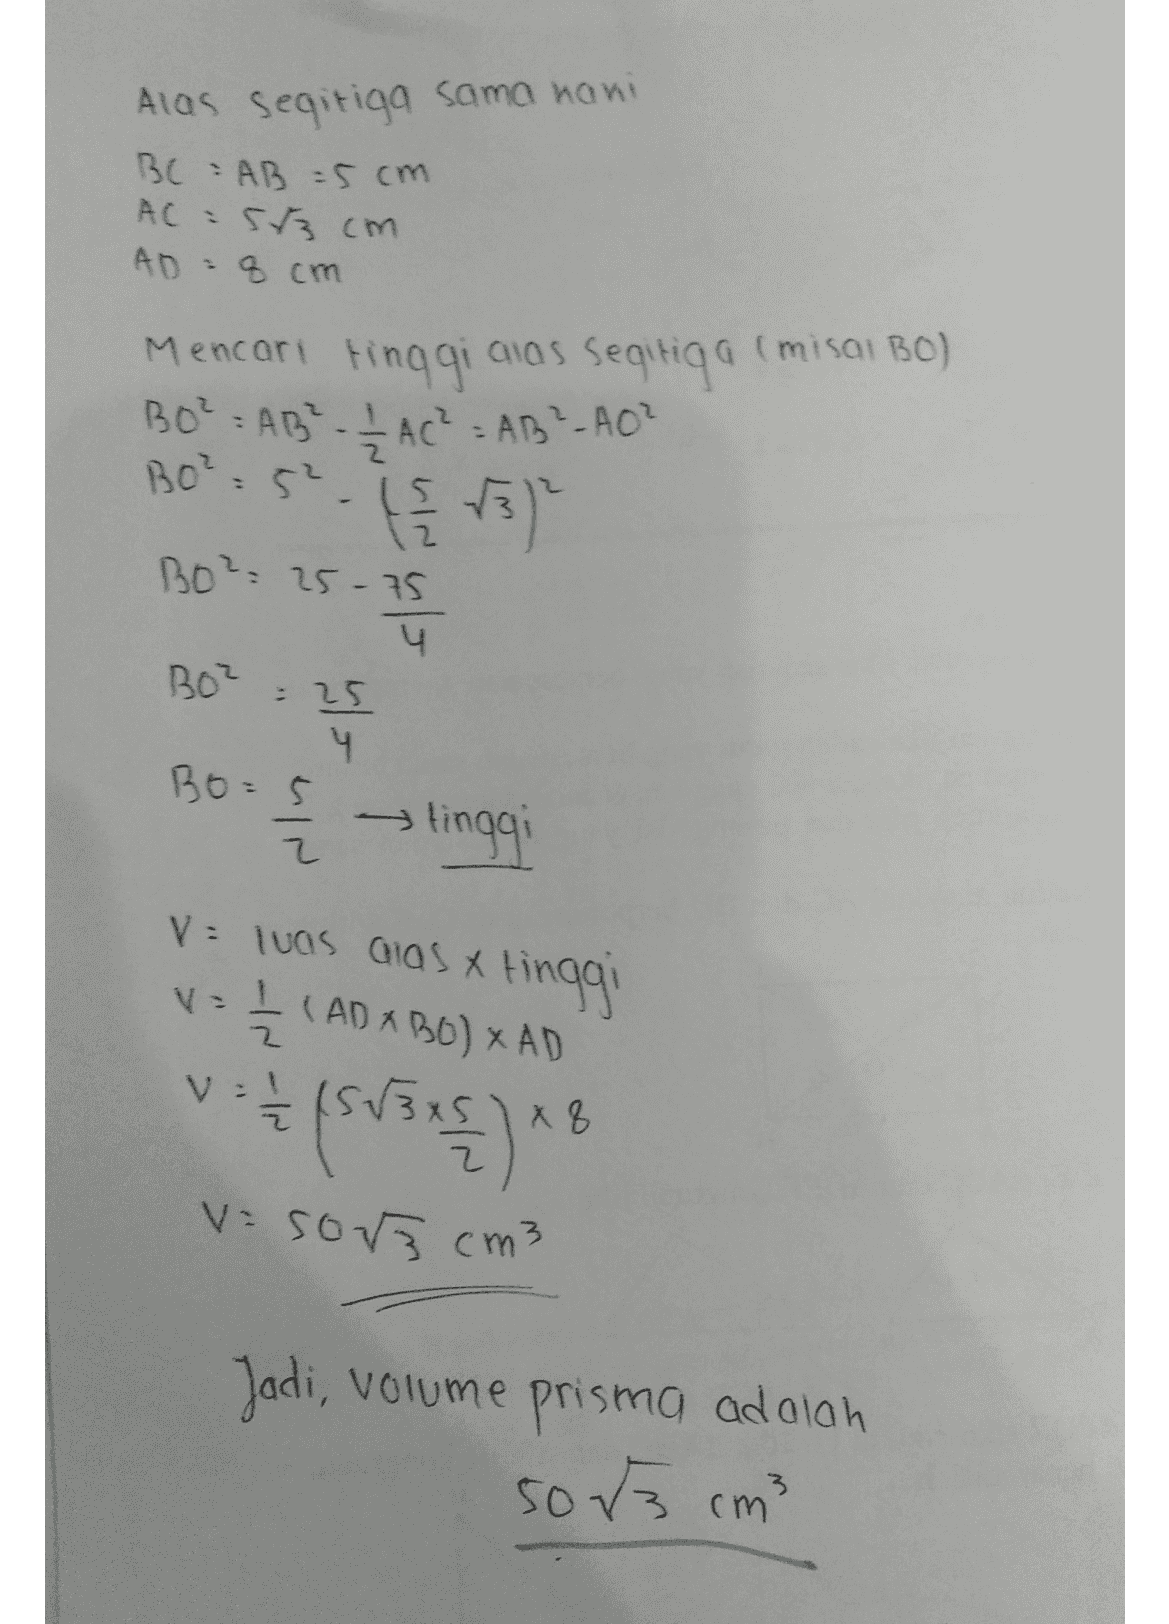 Alas segitiga sama kaki
BC = AB = 5 cm
AC = 5√3 cm
AD = 8 cm
Mencari tinggi alas segitiga (misal BO)
BO² = AB² - 1/2 AC² = AB² - AO²
BO² = 5² - (5/2 √3)²
BO² = 25 - 75/4
BO² = 25/4
BO = 5/2 → tinggi
V = luas alas x tinggi
V = 1/2 (AD x BO) x AD
V = 1/2 (5√3 x 5/2) x 8
V = 50√3 cm³
Jadi, volume prisma adalah
50√3 cm³